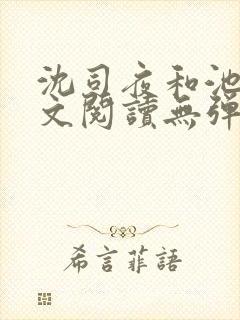 沈司夜和池
文閱讀無彈
希言菲語